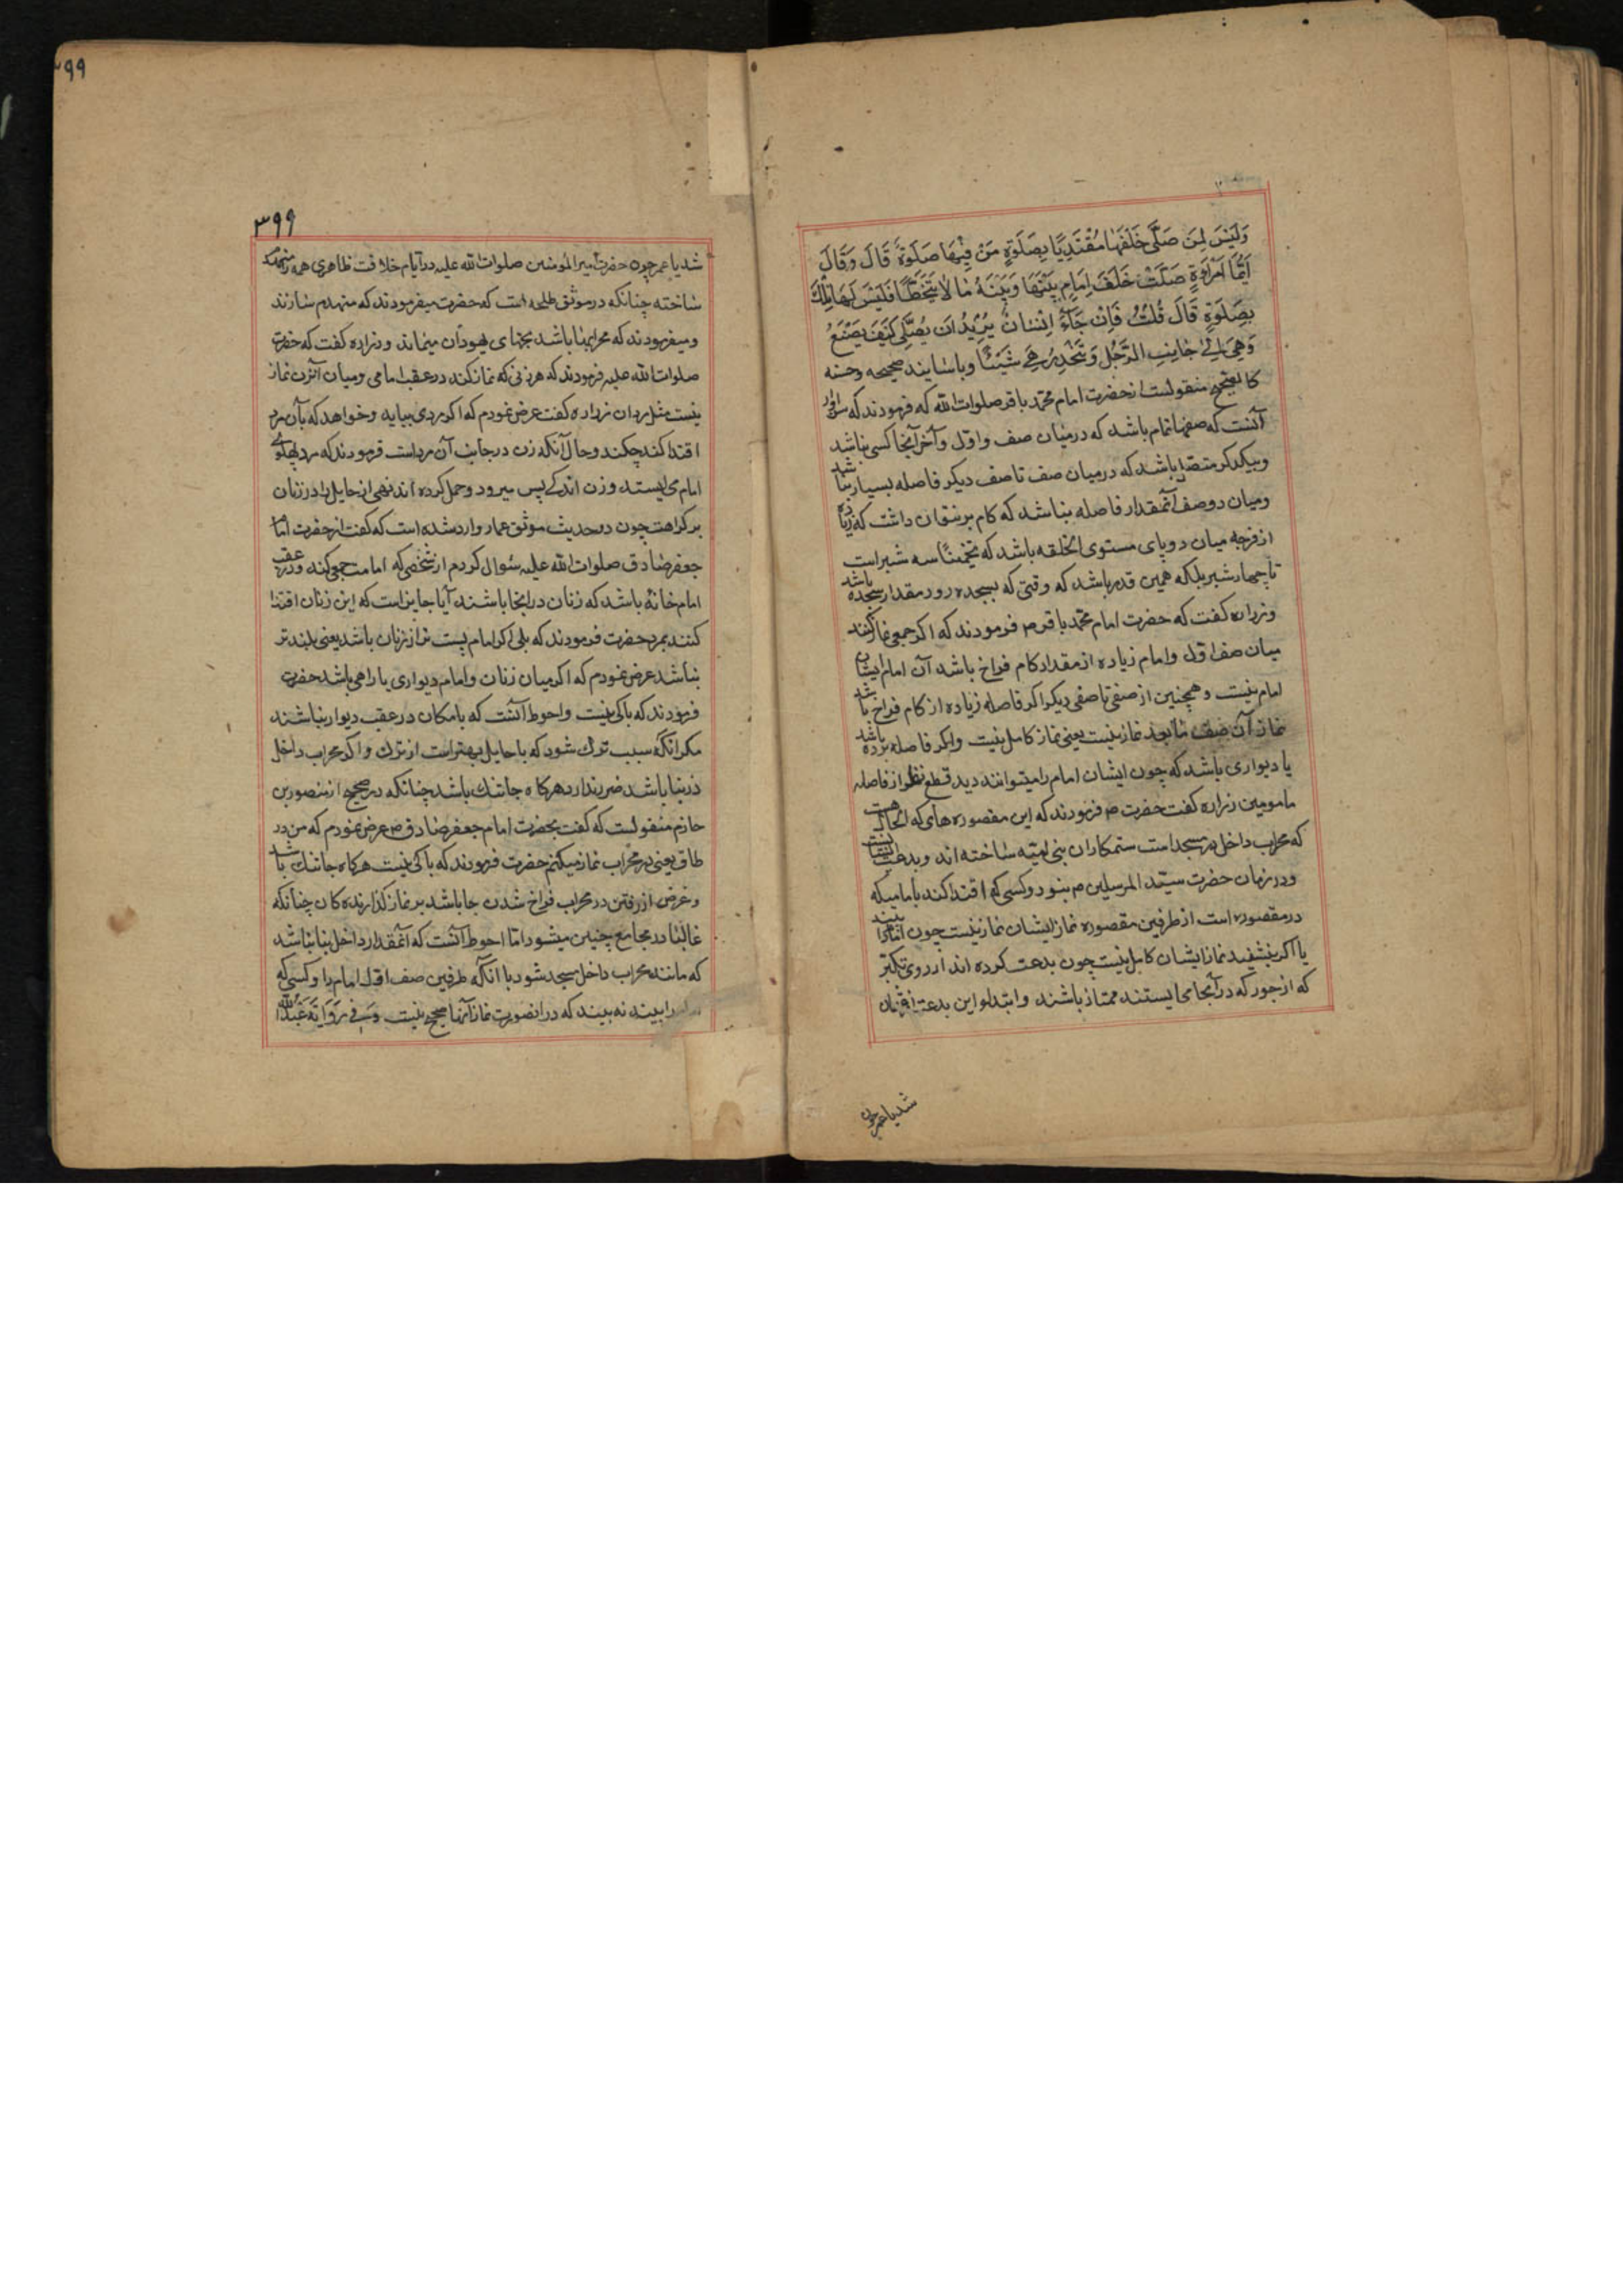 وَلَيْسَ لِمَنْ صَلَّى خَلْفَهَا مُقْتَدِيًا بِصَلَوةِ مَنْ فِيْهَا صَلَوةٌ قَالَ وَقَالَ
اَيُّمَا امْرَاَةٍ صَلَّتْ خَلْفَ اِمَامٍ بَيْنَهَا وَبَيْنَهُ مَا لَا يُتَخَطَّا فَلَيْسَ لَهَا تِلْكَ
بِصَلَوةٍ قَالَ قُلْتُ فَاِنْ جَآءَ اِنْسَانٌ يُرِيْدُ اَنْ يُصَلِّيَ كَيْفَ يَصْنَعُ
وَهِيَ اِلٰى جَانِبِ الرَّجُلِ وَتَنْحَدِرُ هِيَ شَيْئًا وباسانید صحیحه وحسنه
کالصحیح منقولست از حضرت امام محمد باقر صلوات الله که فرمودند که سزاوار
آنست که صفها تمام باشد که در میان صف واول وآخر آنجا کسی نباشد
وبیکدیکر متصل باشد که در میان صف تا صف دیکر فاصله بسیار نباشد
ومیان دو صف آنمقدار فاصله نباشد که کام بر نتوان داشت که زیاده
از فرجه میان دو پای مستوی الخلقه باشد که تخمینًا سه شبر است
تا چهار شبر بلکه همین قدر باشد که وقتی که بسجده رود مقدار سجده باشد
وزراره کفت که حضرت امام محمد باقر ص فرمودند که اکر جمعی نماز کنند
میان صف اول وامام زیاده از مقدار کام فراخ باشد آن امام ایشان
امام نیست وهمچنین از صفی تا صفی دیکر اکر فاصله زیاده از کام فراخ باشد
نماز آن صف مابعد نماز نیست یعنی نماز کامل نیست واکر فاصله پرده باشد
یا دیواری باشد که چون ایشان امام را میتوانند دید قطع نظر از فاصله
مامومین زراره کفت حضرت ص فرمودند که این مقصوره های که الحال هست
که محراب داخل در مسجد است ستمکاران بنی امیه ساخته اند وبدعت ایشانست
ودر زمان حضرت سید المرسلین ص نبود وکسی که اقتدا کند بامامیکه
در مقصوره است از طرفین مقصوره نماز ایشان نماز نیست چون امام را نبیند
یا اکر بنشیند نماز ایشان کامل نیست چون بدعت کرده اند از روی تکبّر
که از جور که در آنجا می ایستند ممتاز باشند وابتداو این بدعت از عثمان
شد یا عمر چون
۳۹۹
شد یا عمر چون حضرت امیر المومنین صلوات الله علیه در ایام خلافت ظاهری همه را منهدم
ساخته چنانکه در موثق طلحه است که حضرت میفرمودند که منهدم سازند
ومیفرمودند که محرابها باشد بجهای یهودان میماند وزراره کفت که حضرت
صلوات الله علیه فرمودند که هر زنی که نماز کند در عقب امامی ومیان آنزن نماز
نیست مثل مردان زراره کفت عرض نمودم که اکر مردی بیاید وخواهد که بآن مرد
اقتدا کند چکند وحال آنکه زن در جانب آن مرد است فرمودند که مرد پهلوی
امام می ایستد وزن اندکی پس میرود وحمل کرده اند نهی از حایل را در زنان
بر کراهت چون در حدیث موثق عمار وارد شده است که کفت از حضرت امام
جعفر صادق صلوات الله علیه سُوال کردم از شخصی که امامت جمعی کند ودر عقب
امام خانهٔ باشد که زنان در انجا باشند آیا جایز است که این زنان اقتدا
کنند بمرد حضرت فرمودند که بلی اکر امام پست تر از زنان باشد یعنی بلند تر
نباشد عرض نمودم که اکر میان زنان وامام دیواری یا راهی باشد حضرت
فرمودند که باکی نیست واحوط آنست که بامکان در عقب دیوار نباشند
مکر انکه سبب ترک شود که با حایل بهتر است از ترک واکر محراب داخل
در بنا باشد ضرر ندارد هرکاه جا تنک باشد چنانکه در صحیح از منصور بن
حازم منقولست که کفت بحضرت امام جعفر صادق ص عرض نمودم که من در
طاق یعنی در محراب نماز میکنم حضرت فرمودند که باکی نیست هرکاه جا تنک باشد
وغرض از رفتن در محراب فراخ شدن جا باشد بر نماز کذارنده کان چنانکه
غالبًا در مجامع چنین میشود امّا احوط آنست که آنمقدار داخل بنا نباشد
که مانند محراب داخل مسجد شود با انکه طرفین صف اول امام را وکسی که
را بیند نه بیند که در انصورت نماز آنها صحیح نیست وَفِيْ رِوَايَةِ عَبْدِ اللّٰهِ